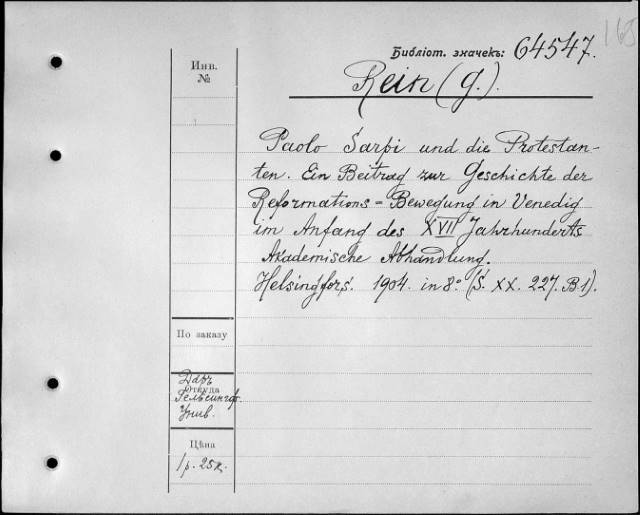 163
Библіот. значекъ: 64547.
Инв.
№
Rein (G.).
Paolo Sarpi und die Protestan-
ten. Ein Beitrag zur Geschichte der
Reformations = Bewegung in Venedig
im Anfang des XVII Jahrhunderts
Akademische Abhandlung.
Helsingfors. 1904. in 8° (S. XX. 227. B.1).
По заказу
Даръ
Откуда
Гельсингф.
Унив.
Цѣна
1 р. 25 к.